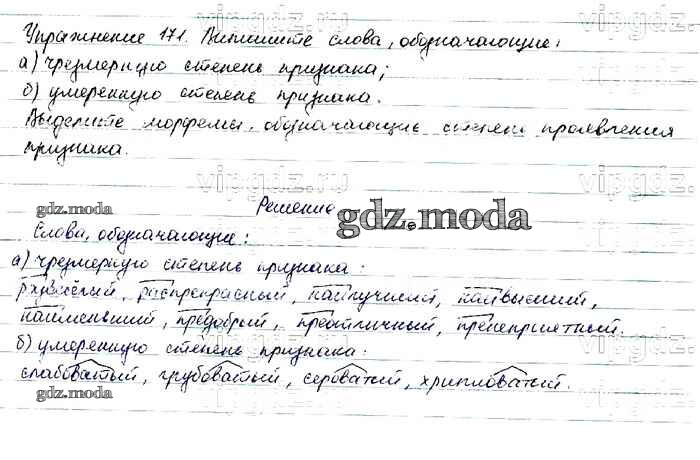 Упражнение 171. Выпишите слова, обозначающие:
а) чрезмерную степень признака;
б) умеренную степень признака.
Выделите морфемы, обозначающие степень проявления
признака.
vipgdz.ru
Решение
gdz.moda
gdz.moda
Слова, обозначающие:
а) чрезмерную степень признака:
распрекрасный, наилучший, наивысший,
наименьший, предобрый, преотличный, пренеприятный.
б) умеренную степень признака:
слабоватый, грубоватый, сероватый, хрипловатый.
gdz.moda